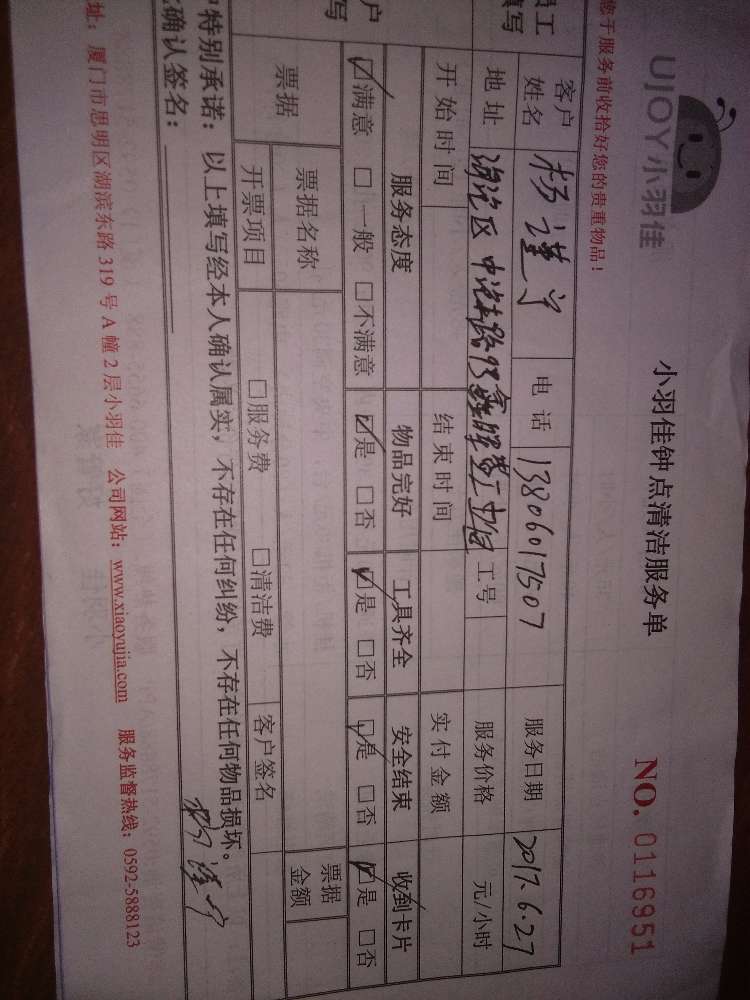 UJOY小羽佳
小羽佳钟点清洁服务单
NO. 0116951
您于服务前收拾好您的贵重物品!
员工
填写
客户
姓名
电话 13806017507
服务日期 2017.6.27
地址
工号
服务价格 元/小时
开始时间 结束时间 实付金额
户
写
服务态度 物品完好 工具齐全 安全结束 收到卡片
☑满意 □一般 □不满意 ☑是 □否 ☑是 □否 ☑是 □否 ☑是 □否
票据 票据名称 票据
金额
开票项目 □服务费 □清洁费 客户签名
特别承诺:以上填写经本人确认属实,不存在任何纠纷,不存在任何物品损坏。
确认签名:
址:厦门市思明区湖滨东路319号A幢2层小羽佳 公司网站:www.xiaoyujia.com 服务监督热线:0592-5888123